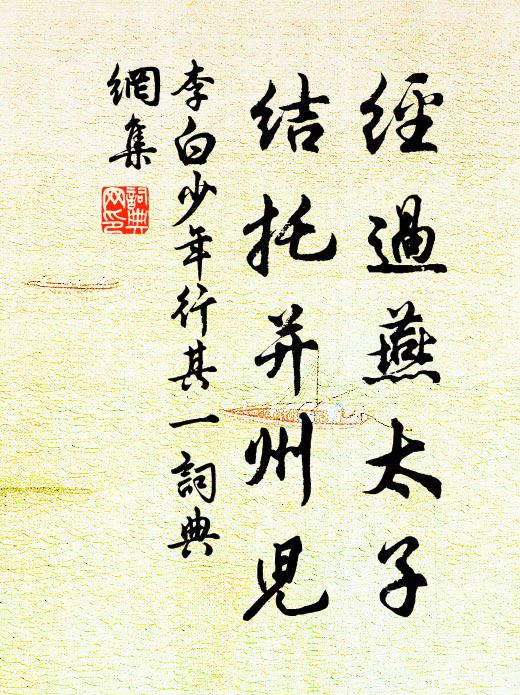 經過燕太子
結托并州兒
李白少年行其一詞典
網集
詞典
网印